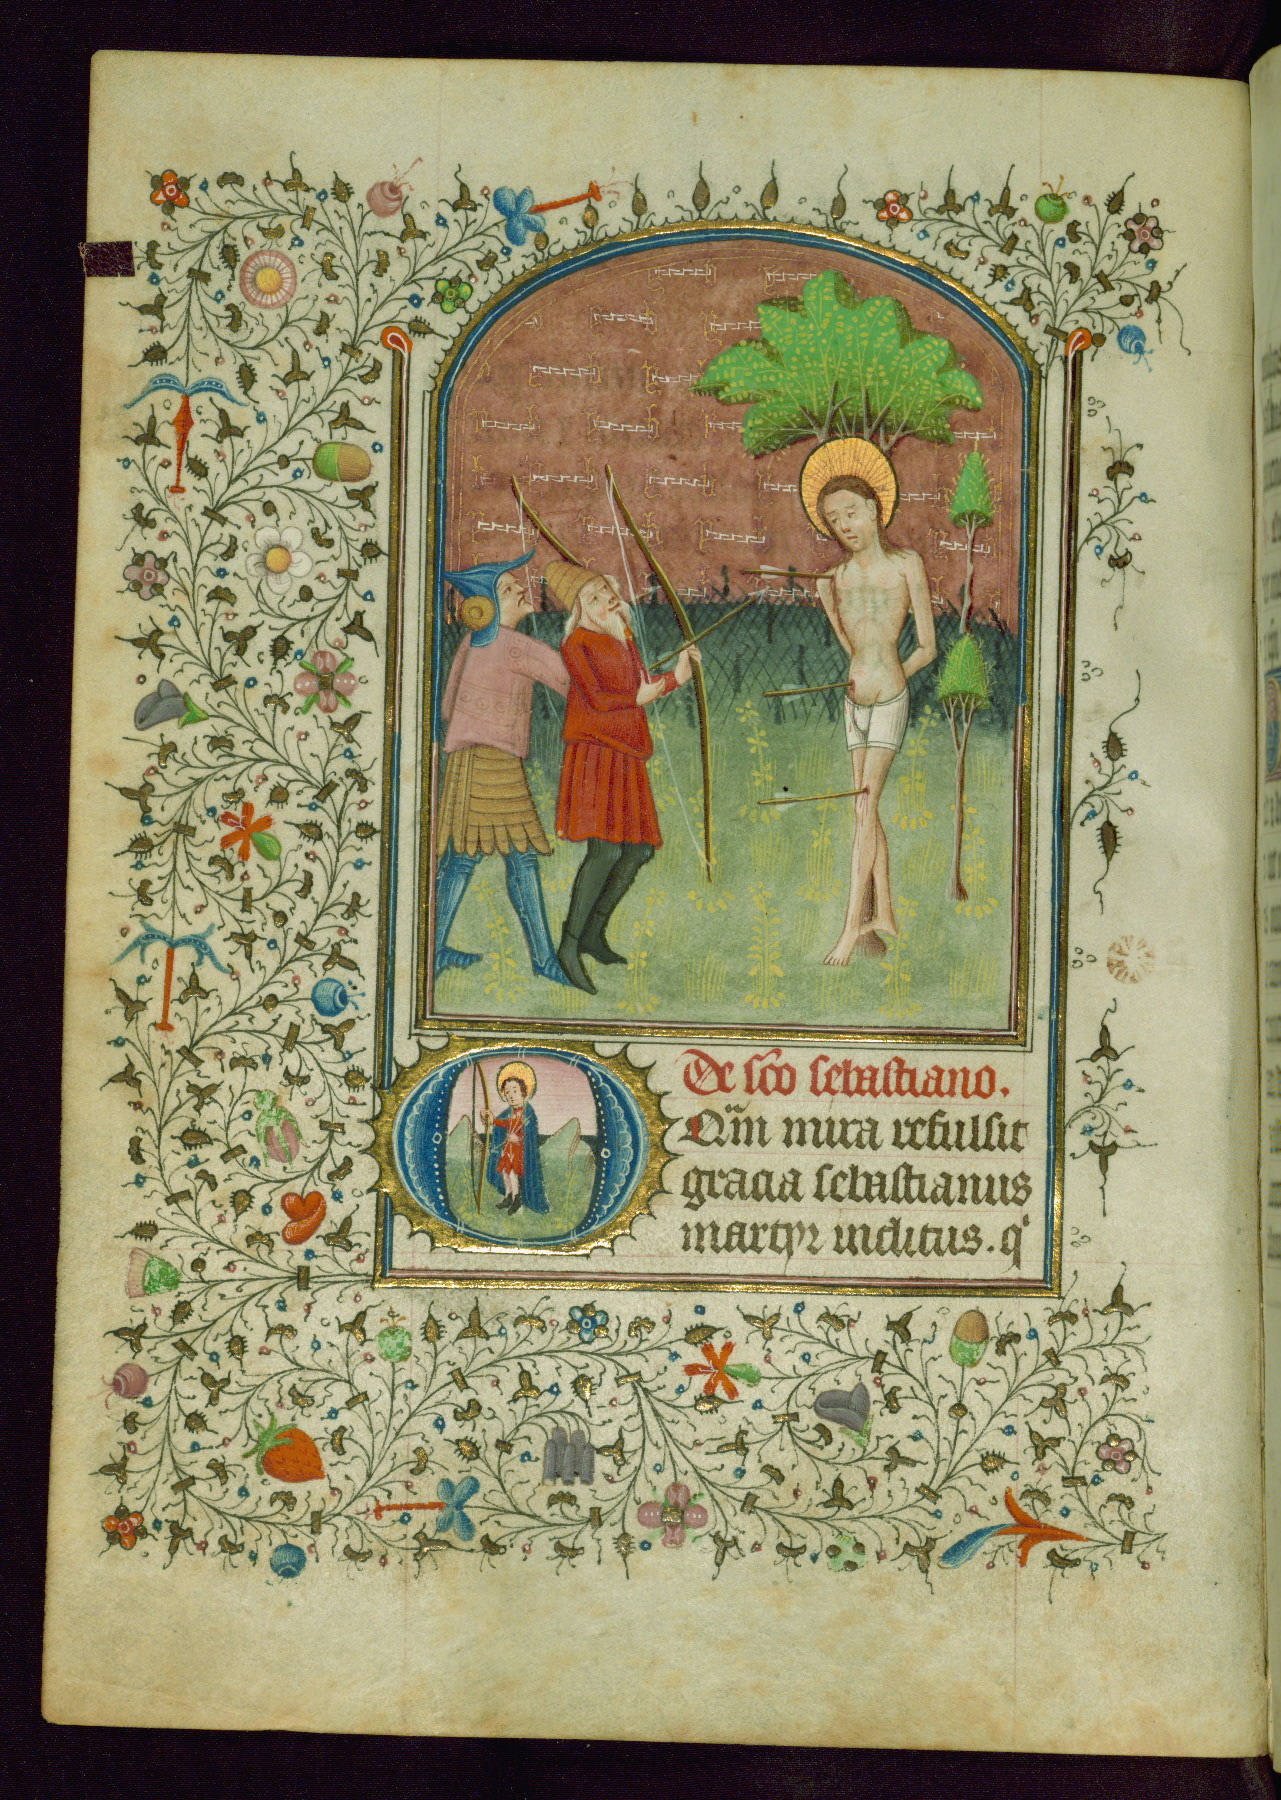 De sco sebastiano.
Qm̄ mira refulsit
gracia sebastianus
martyr inclitus. q